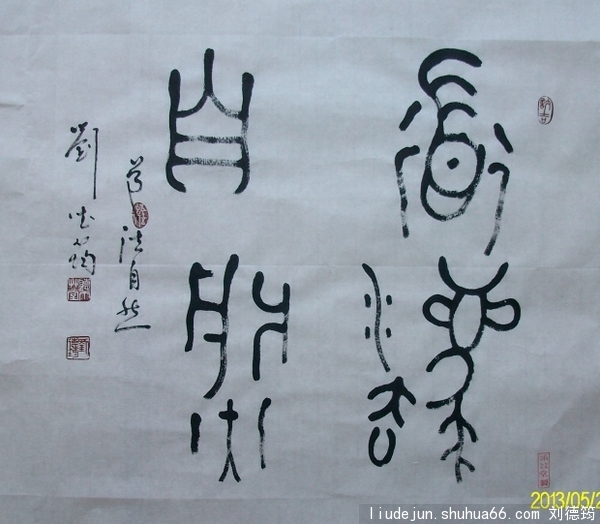 道灋
自然
道法自然
劉德筠
2013/05/2
liudejun.shuhua66.com 刘德筠